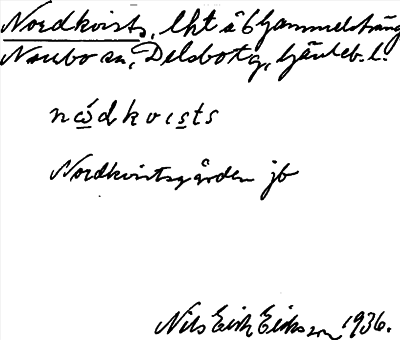 Nordkvists, lht å 6 Gammelsträng
Norrbo sn, Delsbo tg, Gävleb. l.
nώdkvists
Nordkvistsgården jb
Nils Erik Eriksson 1936.